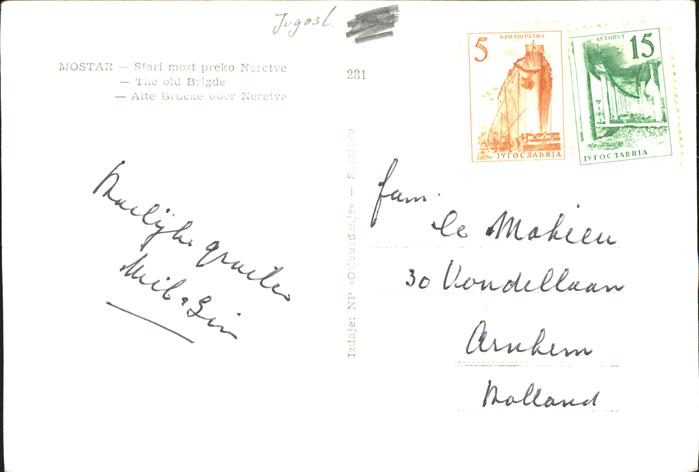 Jugosl.
MOSTAR — Stari most preko Neretve
— The old Brigde
— Alte Brücke über Neretva
281
5
БРОДОГРАДЊА
ЈУГОСЛАВИЈА
АУТОПУТ
15
ЈУГОСЛАВИЈА
Izdaje: NP »Oslobođenje« — Sarajevo
Hartelijke groeten
fam.
le Mahieu
30 Vondellaan
Arnhem
Holland